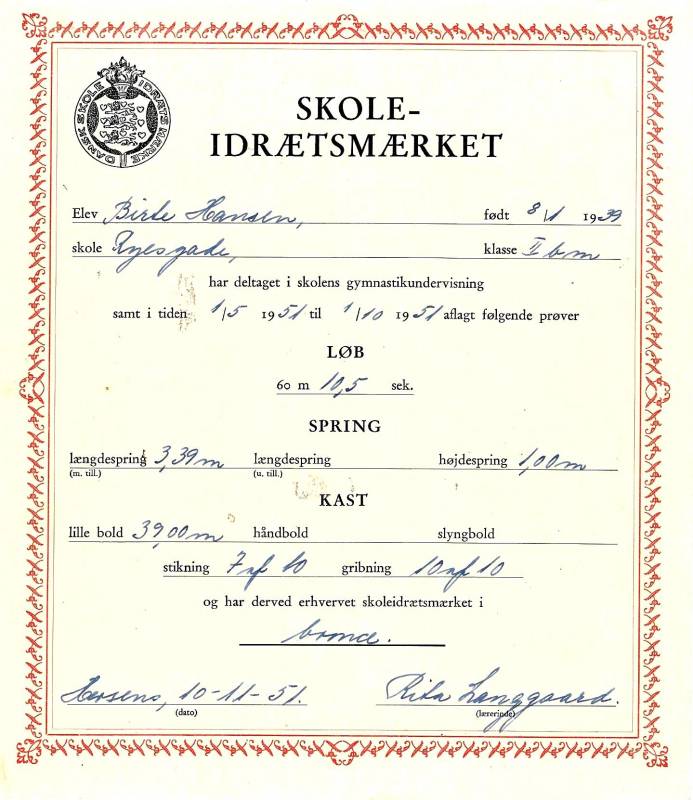 DANSK SKOLE IDRÆTS MÆRKE
SKOLE-
IDRÆTSMÆRKET
Elev Birte Hansen, født 8/1 1939
skole Ryesgade, klasse II b m
har deltaget i skolens gymnastikundervisning
samt i tiden 1/5 1951 til 1/10 1951 aflagt følgende prøver
LØB
60 m 10,5 sek.
SPRING
længdespring 3,39 m længdespring højdespring 1,00 m
(m. till.) (u. till.)
KAST
lille bold 39,00 m håndbold slyngbold
stikning 7 af 10 gribning 10 af 10
og har derved erhvervet skoleidrætsmærket i
bronce.
Horsens, 10-11-51. Rita Langgaard.
(dato) (lærerinde)